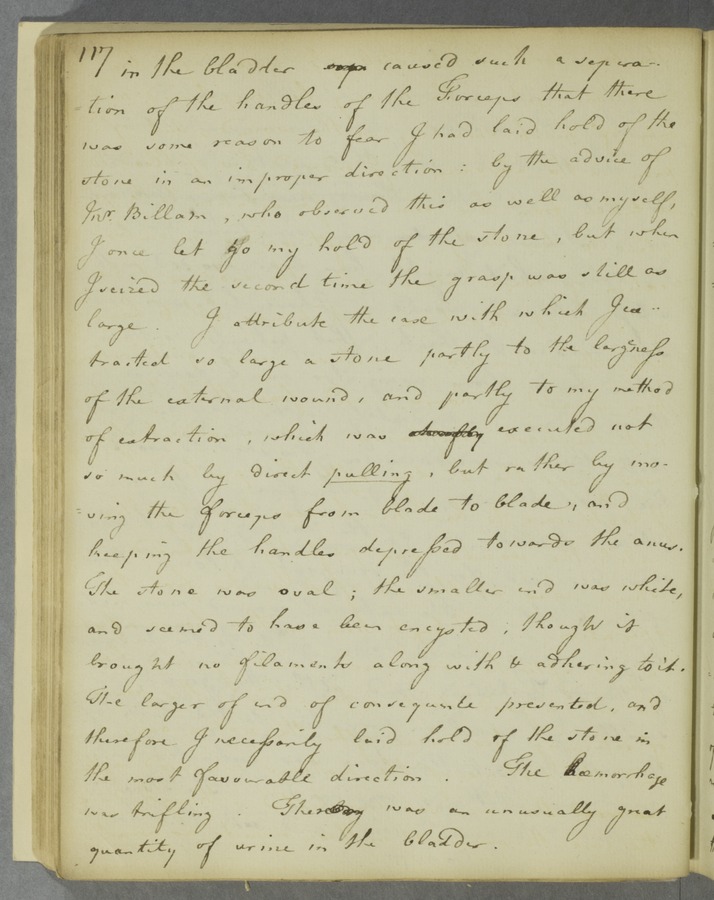 117 in the bladder caused such a separa-
tion of the handles of the Forceps that there
was some reason to fear I had laid hold of the
stone in an improper direction : by the advice of
Mr. Billam , who observed this as well as myself,
I once let go my hold of the stone , but when
I seized the second time the grasp was still as
large . I attribute the ease with which I ex-
tracted so large a stone partly to the largness
of the external wound, and partly to my method
of extraction , which was executed not
so much by direct pulling , but rather by mo-
=ving the forceps from blade to blade , and
keeping the handles depressed towards the anus.
The stone was oval ; the smaller end was white,
and seemed to have been encysted , though it
brought no filaments along with & adhering to it.
The larger of end of consequence presented, and
therefore I necessarily laid hold of the stone in
the most favourable direction . The hæmorrhage
was trifling . There was an unusually great
quantity of urine in the bladder .